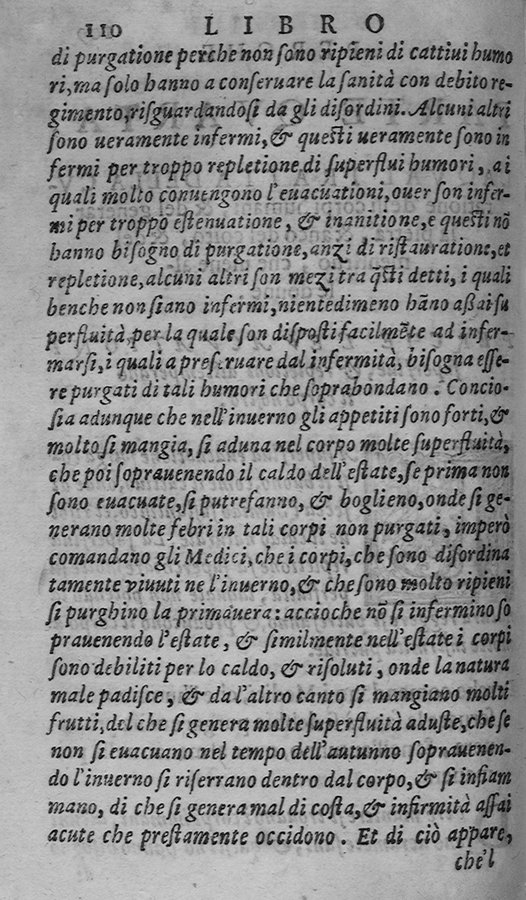 110 LIBRO
di purgatione perche non sono ripieni di cattiui humo
ri, ma solo hanno a conseruare la sanità con debito re-
gimento, risguardandosi da gli disordini. Alcuni altri
sono ueramente infermi, & questi ueramente sono in
fermi per troppo repletione di superflui humori, a i
quali molto conuengono l'euacuationi, ouer son infer-
mi per troppo estenuatione, & inanitione, e questi nō
hanno bisogno di purgatione, anzi di ristauratione, et
repletione, alcuni altri son mezi tra q̄sti detti, i quali
benche non siano infermi, nientedimeno hāno aßai su
perfluità, per la quale son disposti facilmēte ad infer-
marsi, i quali a preseruare dal infermità, bisogna esse-
re purgati di tali humori che soprabondano. Concio-
sia adunque che nell'inuerno gli appetiti sono forti, &
molto si mangia, si aduna nel corpo molte superfluità,
che poi soprauenendo il caldo dell'estate, se prima non
sono euacuate, si putrefanno, & boglieno, onde si ge-
nerano molte febri in tali corpi non purgati, imperò
comandano gli Medici, che i corpi, che sono disordina
tamente viuuti ne l'inuerno, & che sono molto ripieni
si purghino la primauera: accioche nō si infermino so
prauenendo l'estate, & similmente nell'estate i corpi
sono debiliti per lo caldo, & risoluti, onde la natura
male padisce, & da l'altro canto si mangiano molti
frutti, del che si genera molte superfluità aduste, che se
non si euacuano nel tempo dell'autunno soprauenen-
do l'inuerno si riserrano dentro dal corpo, & si infiam
mano, di che si genera mal di costa, & infirmità assai
acute che prestamente occidono. Et di ciò appare,
che'l